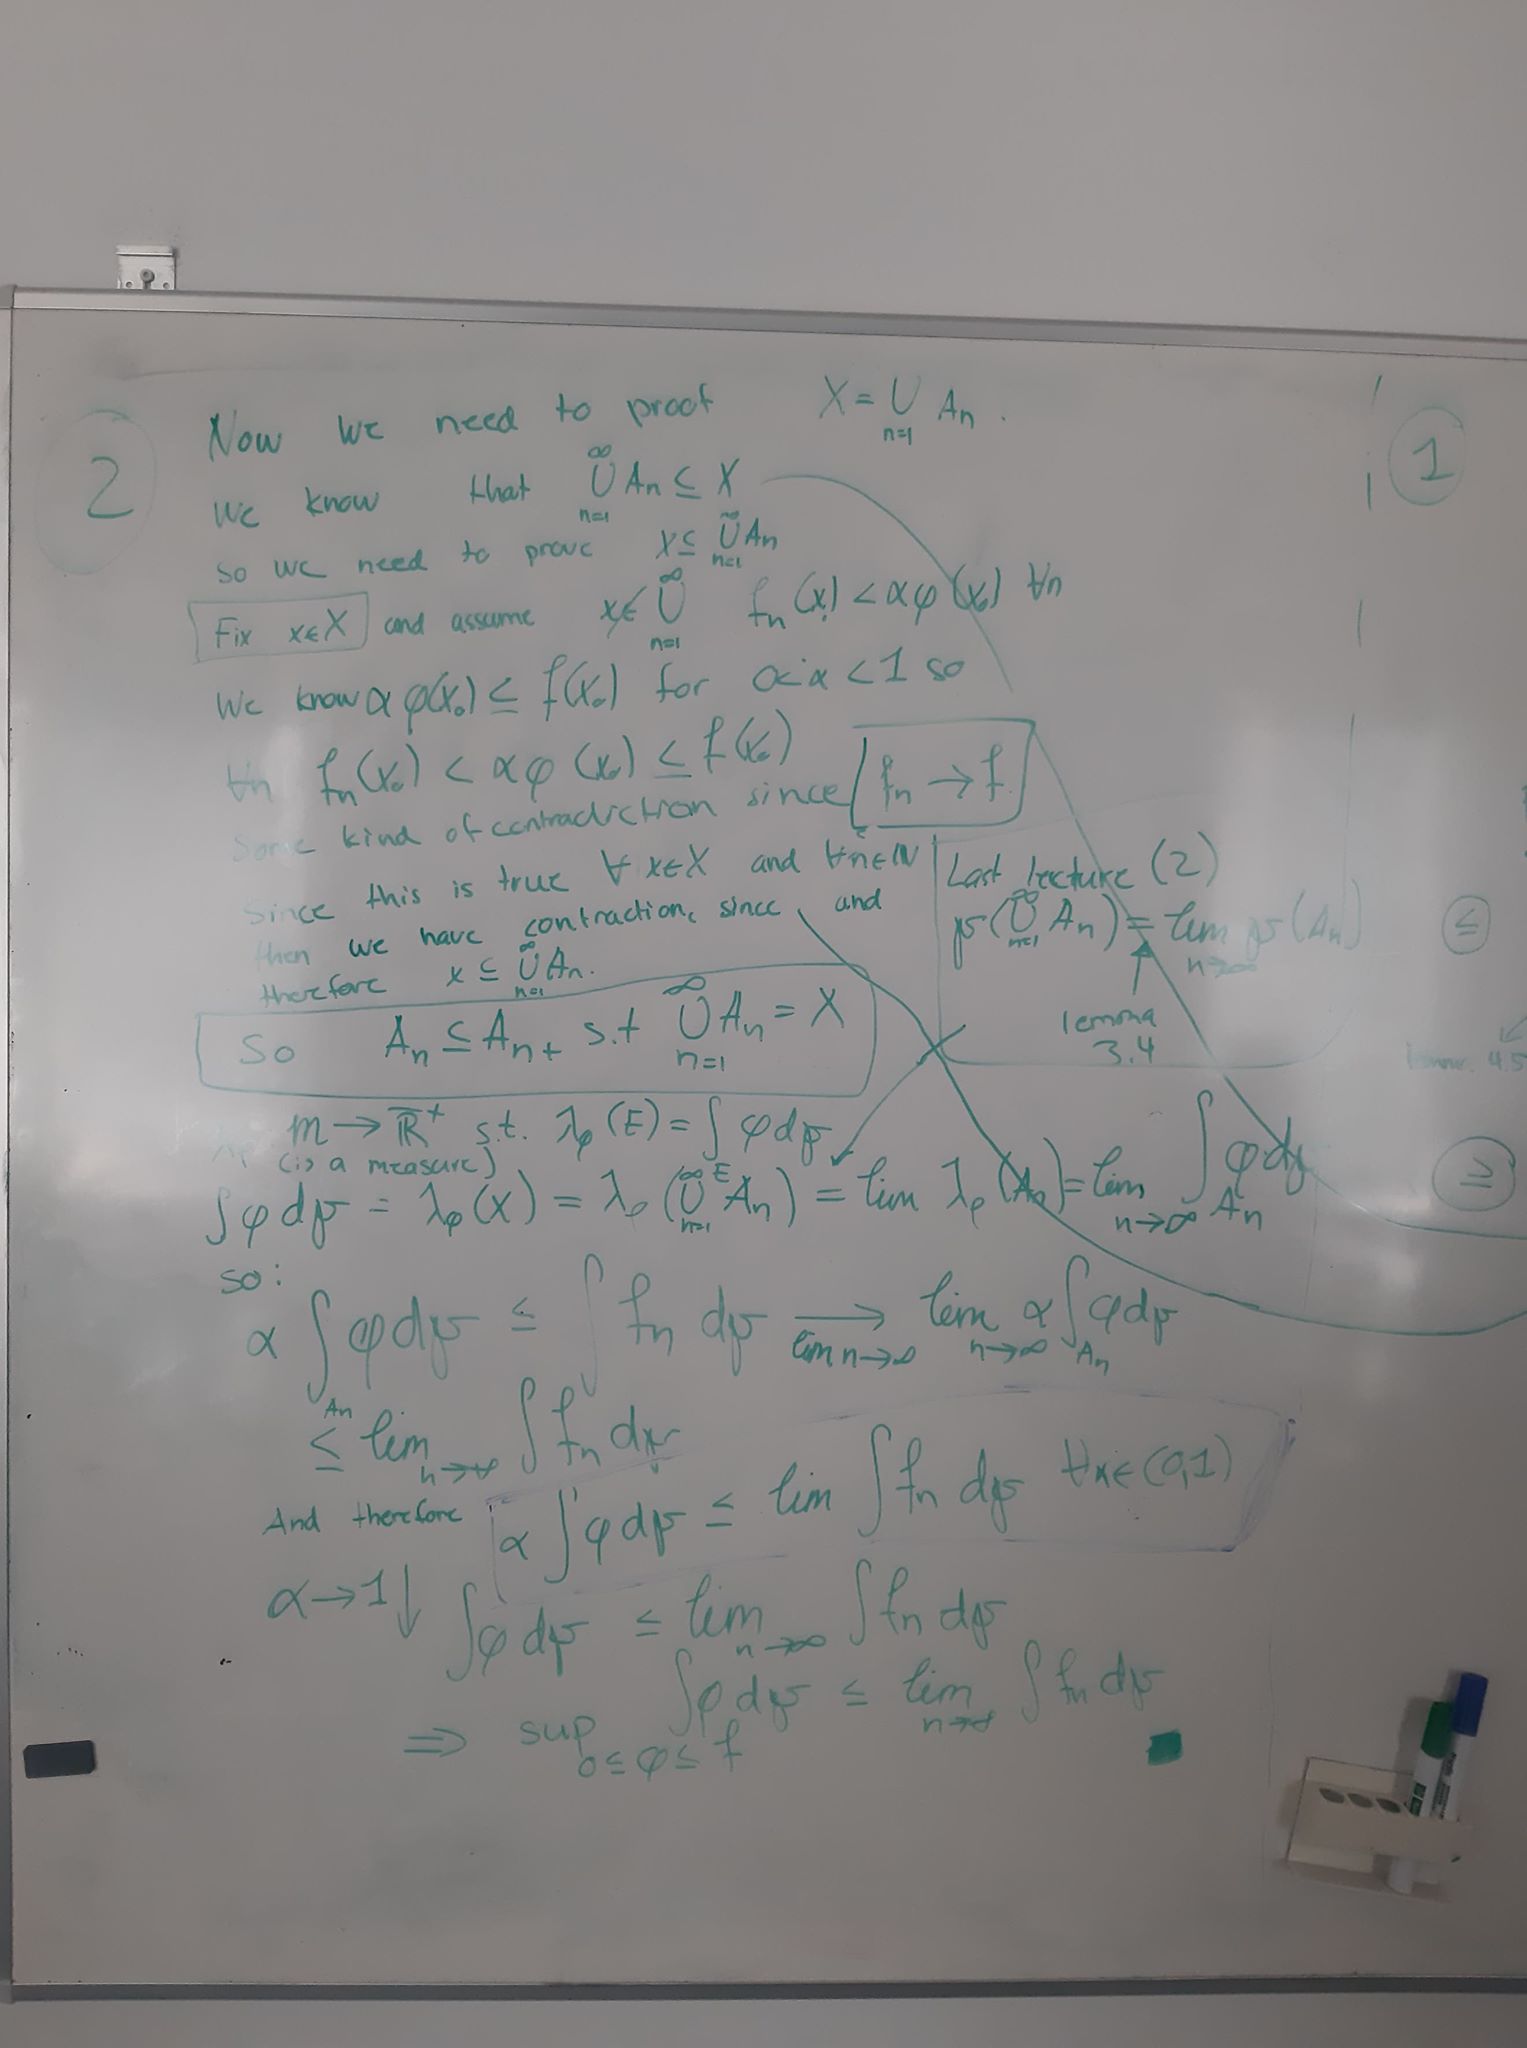 2
Now we need to proof X = ∪ₙ₌₁ Aₙ.
We know that ∪ₙ₌₁^∞ Aₙ ⊆ X
so we need to prove X ⊆ ∪ₙ₌₁^∞ Aₙ
Fix x∈X and assume x∉ ∪ₙ₌₁^∞ fₙ(x₀) < αφ(x₀) ∀n
We know αφ(x₀) ≤ f(x₀) for 0<α<1 so
∀n fₙ(x₀) < αφ(x₀) ≤ f(x₀)
Some kind of contradiction since fₙ → f
Since this is true ∀x∈X and ∀n∈ℕ
then we have contraction, since and
therefore x ⊆ ∪ₙ₌₁^∞ Aₙ.
So Aₙ ⊆ Aₙ₊ s.t ∪ₙ₌₁^∞ Aₙ = X
m → ℝ̄⁺ s.t. λ_φ(E) = ∫_E φdμ
(is a measure)
∫φdμ = λ_φ(X) = λ_φ(∪ₙ₌₁^∞ Aₙ) = lim λ_φ(Aₙ) = lim_{n→∞} ∫_{Aₙ} φdμ
so:
α ∫_{Aₙ} φdμ ≤ ∫ fₙ dμ →_{lim n→∞} lim_{n→∞} α ∫_{Aₙ} φdμ
≤ lim_{n→∞} ∫ fₙ dμ
And therefore α ∫φdμ ≤ lim ∫ fₙ dμ ∀α∈(0,1)
α→1↓ ∫φdμ ≤ lim_{n→∞} ∫ fₙ dμ
⇒ sup_{0≤φ≤f} ∫φdμ ≤ lim_{n→∞} ∫ fₙ dμ ■
Last lecture (2)
μ(∪ₙ₌₁^∞ Aₙ) = lim_{n→∞} μ(Aₙ)
↑
lemma
3.4
1
≤
4.5
≥